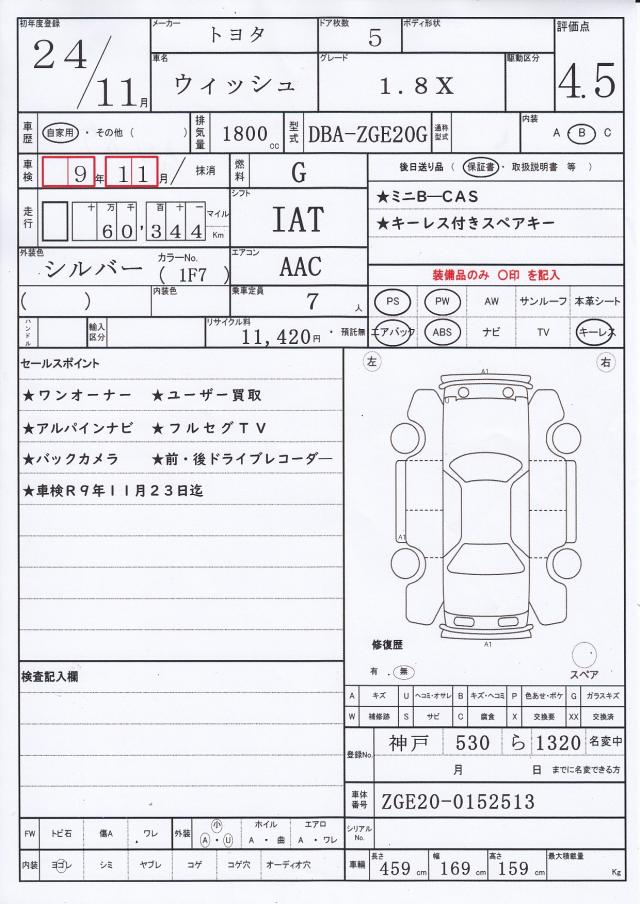 初年度登録 24/11月
メーカー トヨタ
ドア枚数 5
ボディ形状
評価点 4.5
車名 ウィッシュ
グレード 1.8X
駆動区分
車歴 自家用・その他( )
排気量 1800cc
型式 DBA-ZGE20G
通称型式
内装 A・B C
車検 9年11月/抹消
燃料 G
後日送り品(保証書・取扱説明書 等)
★ミニB-CAS
★キーレス付きスペアキー
走行 十万千百十一 60,344 マイル Km
シフト IAT
外装色 シルバー カラーNo.(1F7)
エアコン AAC
装備品のみ 〇印 を記入
( )
内装色
乗車定員 7人
PS PW AW サンルーフ 本革シート
ハンドル
輸入区分
リサイクル料 11,420円・預託無
エアバック ABS ナビ TV キーレス
セールスポイント
左 右
★ワンオーナー ★ユーザー買取
★アルパインナビ ★フルセグTV
★バックカメラ ★前・後ドライブレコーダー
★車検R9年11月23日迄
A1
A1
A1
修復歴
有.無
スペア
検査記入欄
A キズ U ヘコミ・オサレ B キズ・ヘコミ P 色あせ・ボケ G ガラスキズ
W 補修跡 S サビ C 腐食 X 交換要 XX 交換済
登録No. 神戸 530 ら 1320 名変中
月 日 までに名変できる方
車体番号 ZGE20-0152513
シリアルNo.
FW トビ石 傷A ワレ 外装 小 A・U ホイル A・曲 エアロ A・ワレ
内装 ヨゴレ シミ ヤブレ コゲ コゲ穴 オーディオ穴
車輌 長さ 459cm 幅 169cm 高さ 159cm 最大積載量 Kg